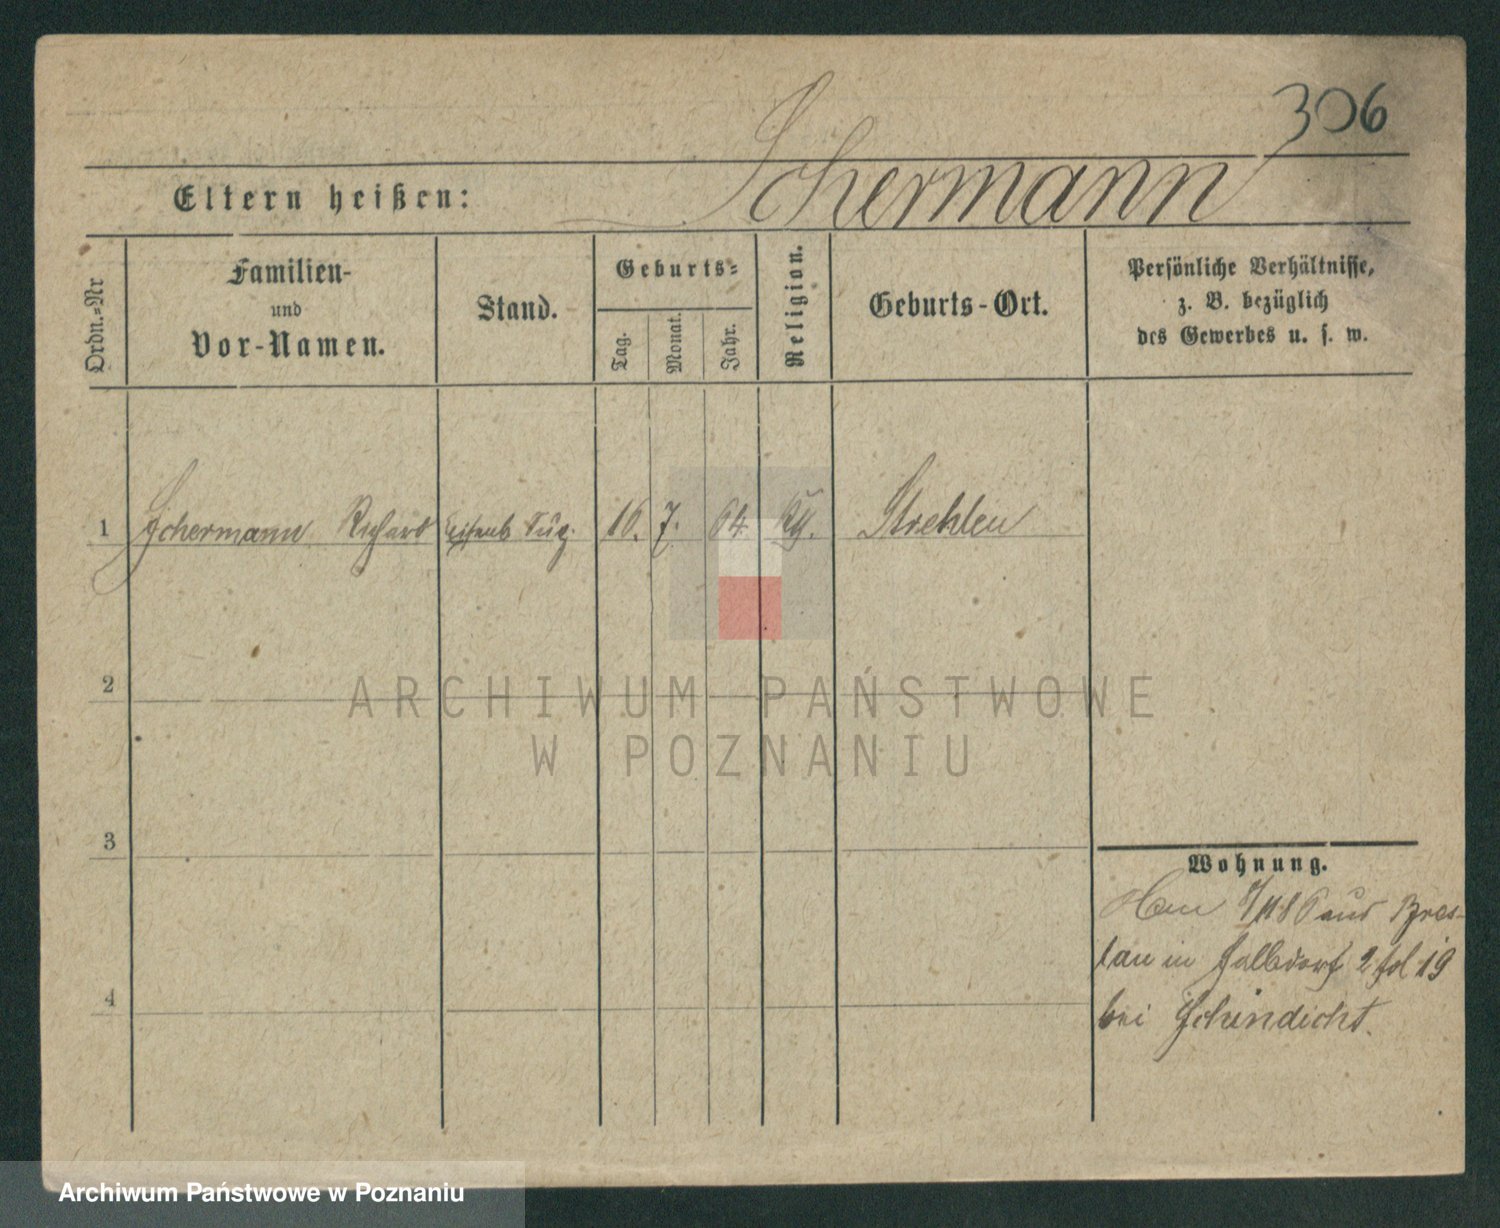 306
Schermann
Eltern heißen:
Ordn.-Nr
Familien-
und
Vor-Namen.
Stand.
Geburts-
Tag.
Monat.
Jahr.
Religion.
Geburts-Ort.
Persönliche Verhältnisse,
z. B. bezüglich
des Gewerbes u. s. w.
1 Schermann Richard 16. 7. 64 Strehlen
2
ARCHIWUM PAŃSTWOWE
W POZNANIU
3
4
Wohnung.
aus Bres-
lau in 2 fol 19
bei Schindicht.
Archiwum Państwowe w Poznaniu